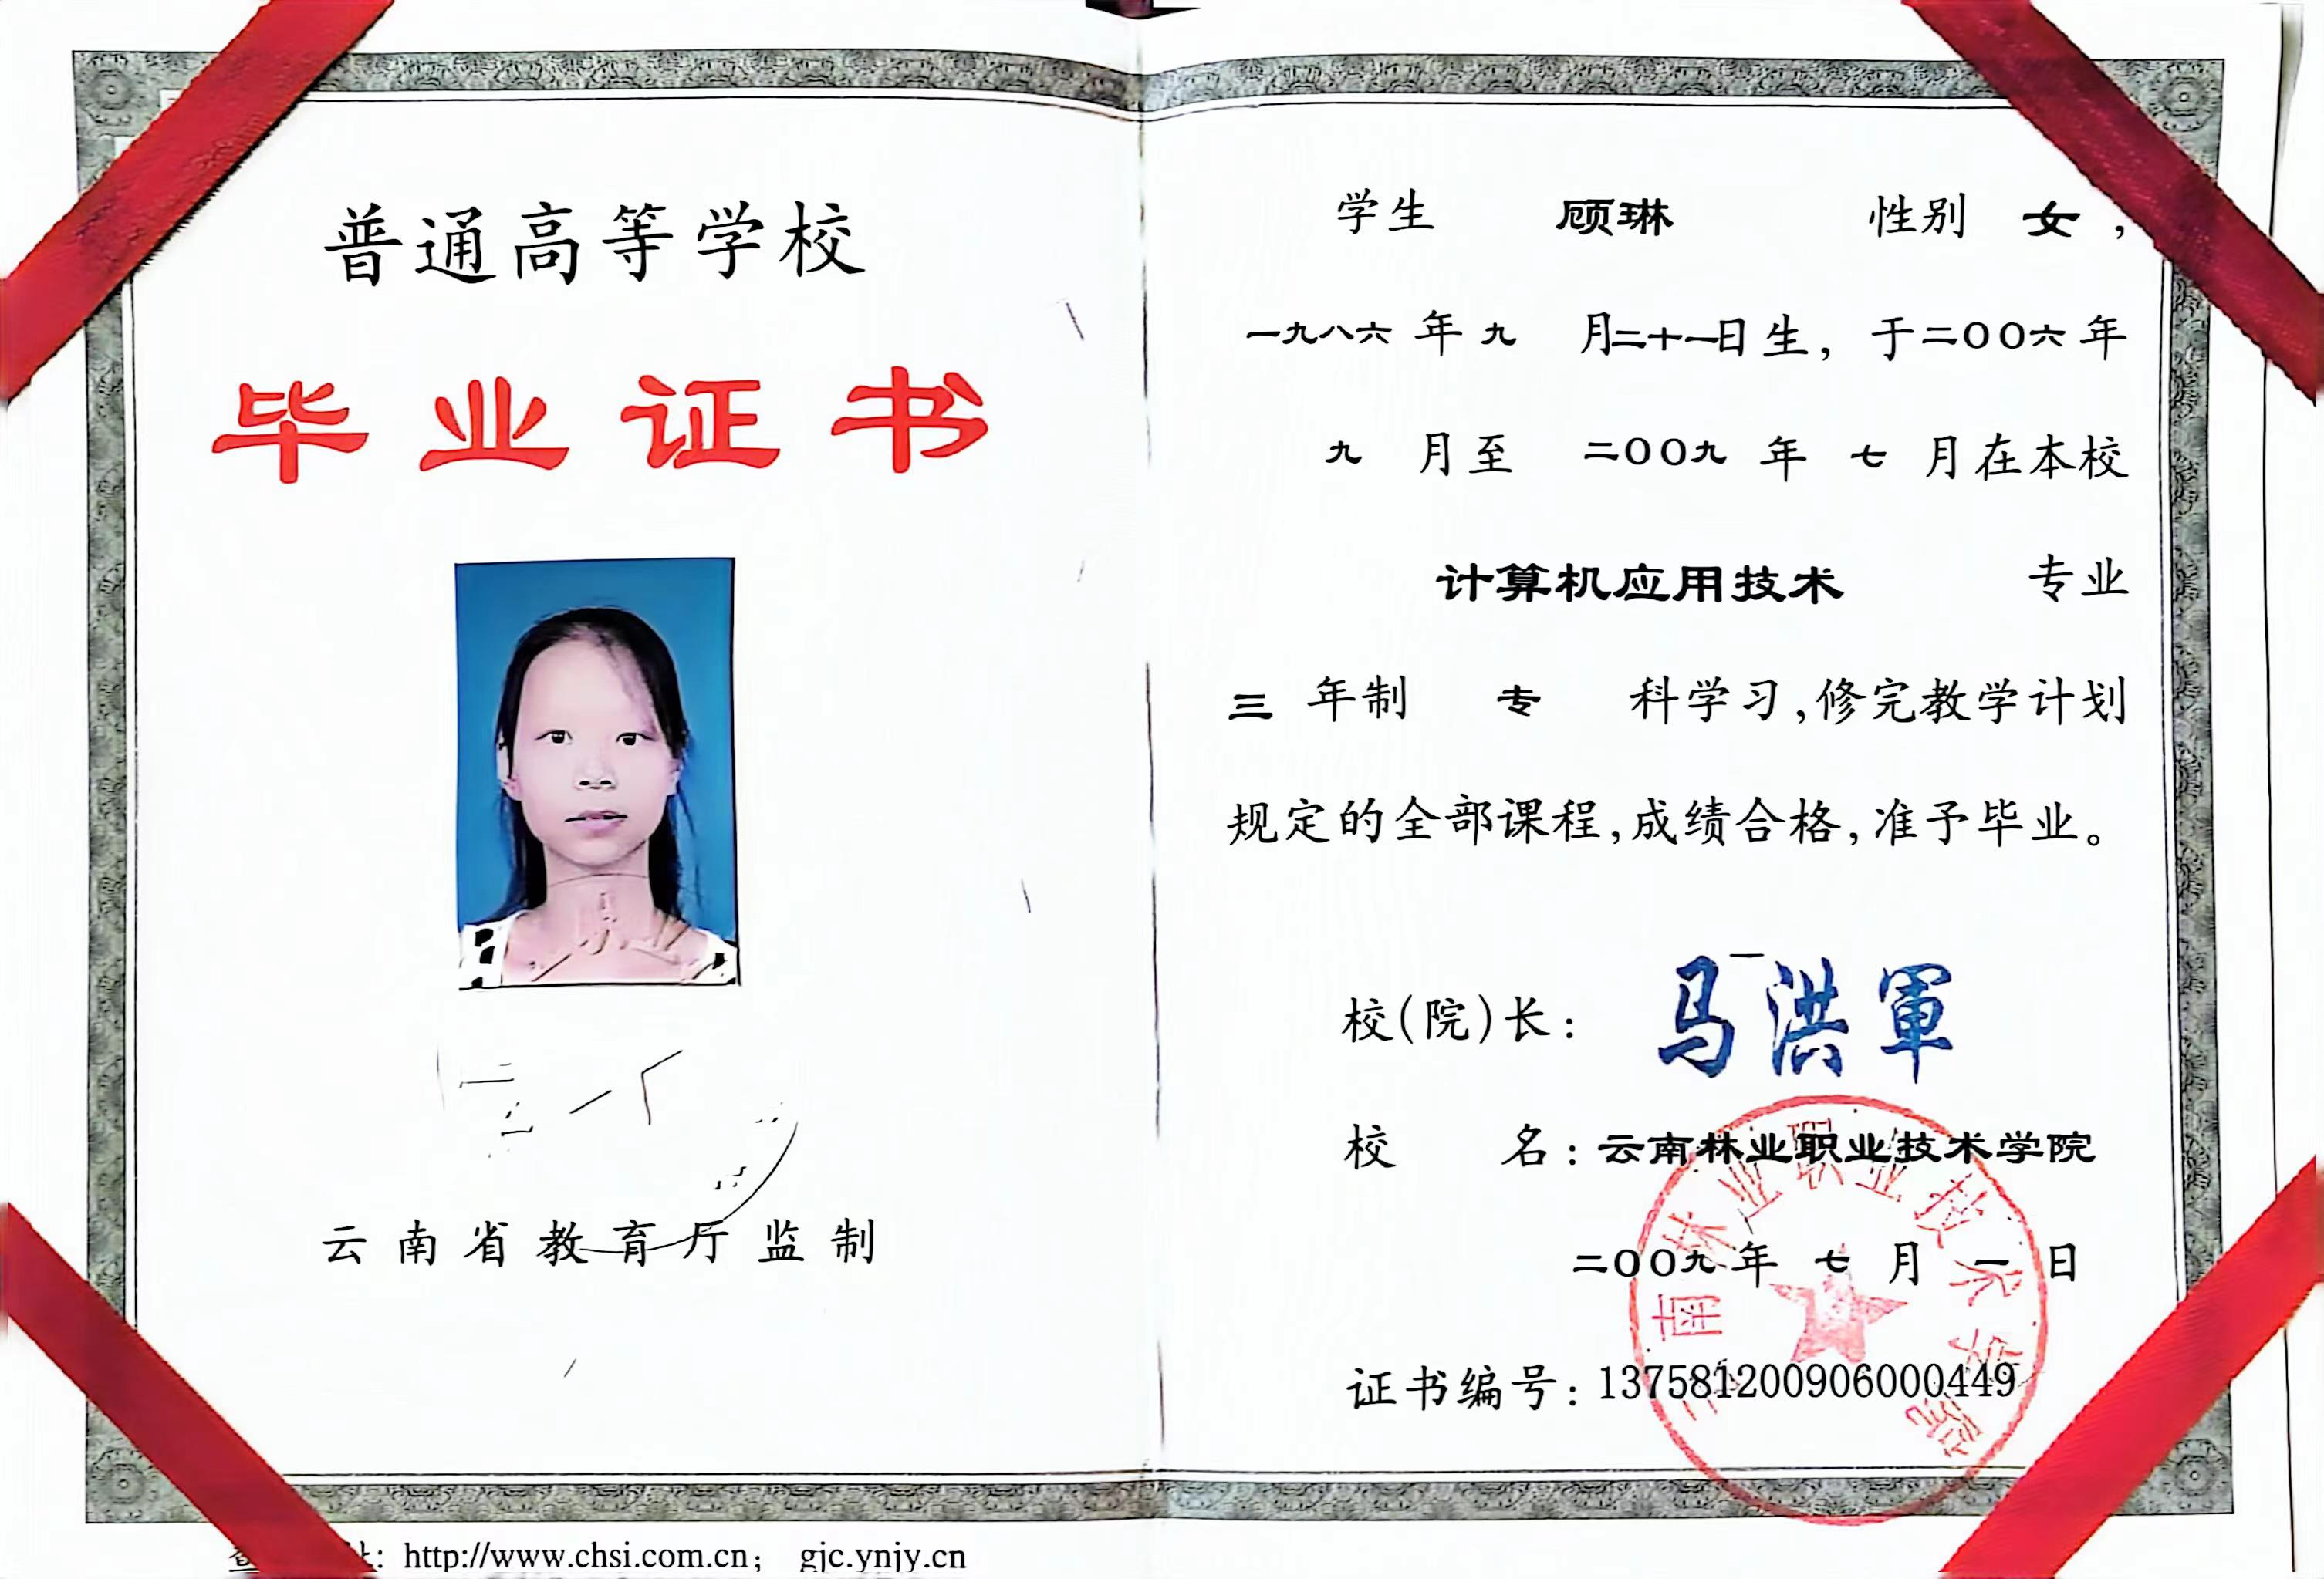 普通高等学校
毕业证书
云南省教育厅监制
http://www.chsi.com.cn; gjc.ynjy.cn
学生 顾琳 性别 女,
一九八六年九月二十一日生,于二〇〇六年
九月至二〇〇九年七月在本校
计算机应用技术 专业
三年制 专 科学习,修完教学计划
规定的全部课程,成绩合格,准予毕业。
校(院)长: 马洪軍
校 名: 云南林业职业技术学院
二〇〇九年七月一日
证书编号: 137581200906000449
云南林业职业技术学院